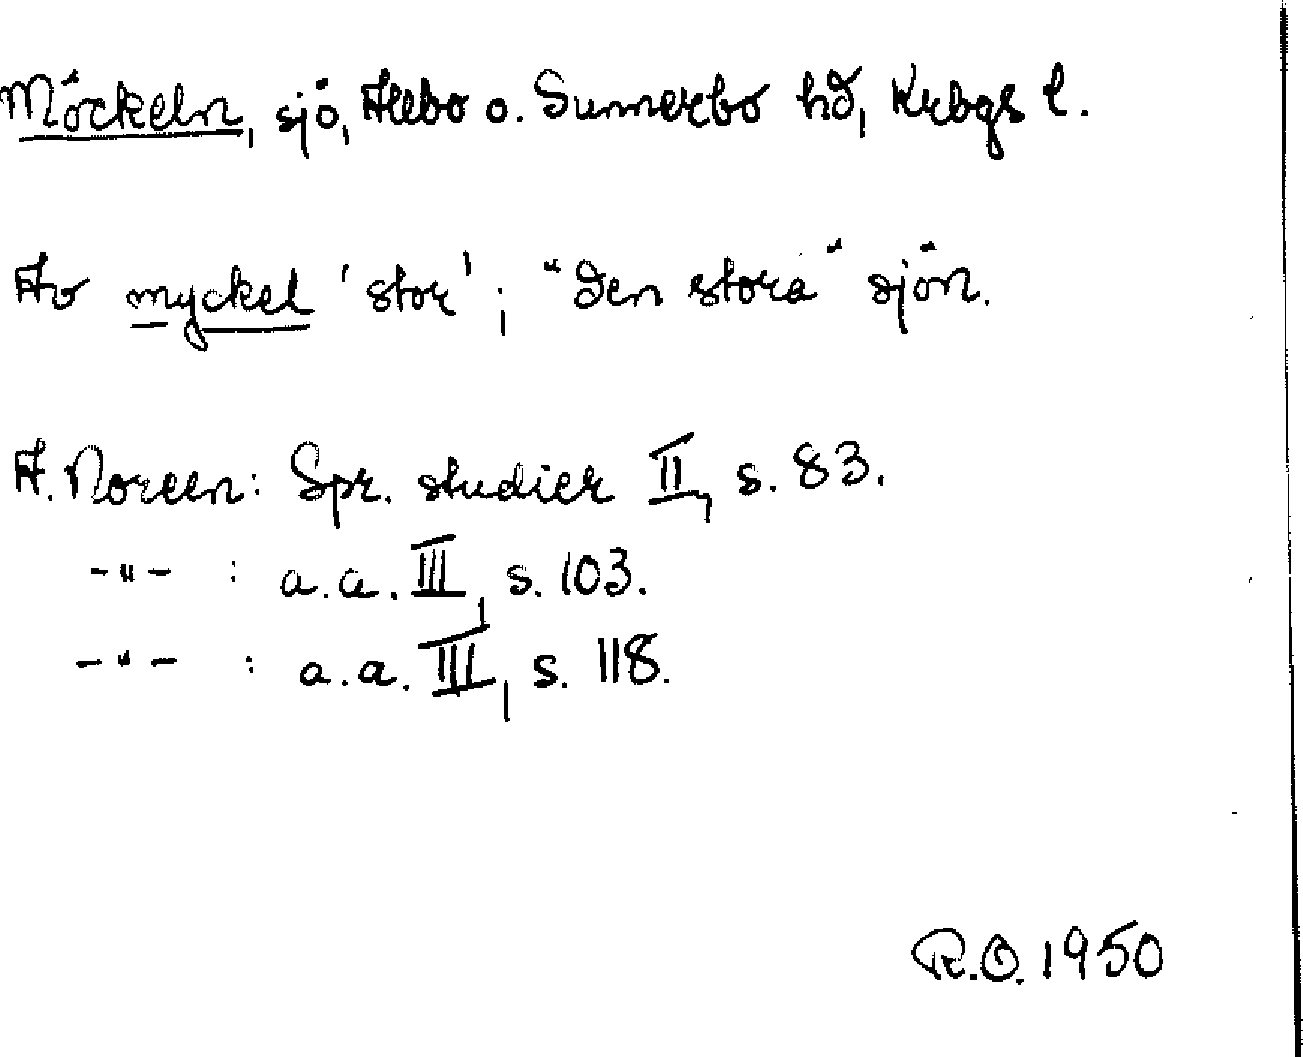 Möckeln, sjö, Allbo o. Sunnerbo hd, Krbgs l.
Av myckel 'stor'; "den stora" sjön.
A. Noreen: Spr. studier II, s. 83.
-"- : a.a. III, s. 103.
-"- : a.a. III, s. 118.
R.O. 1950